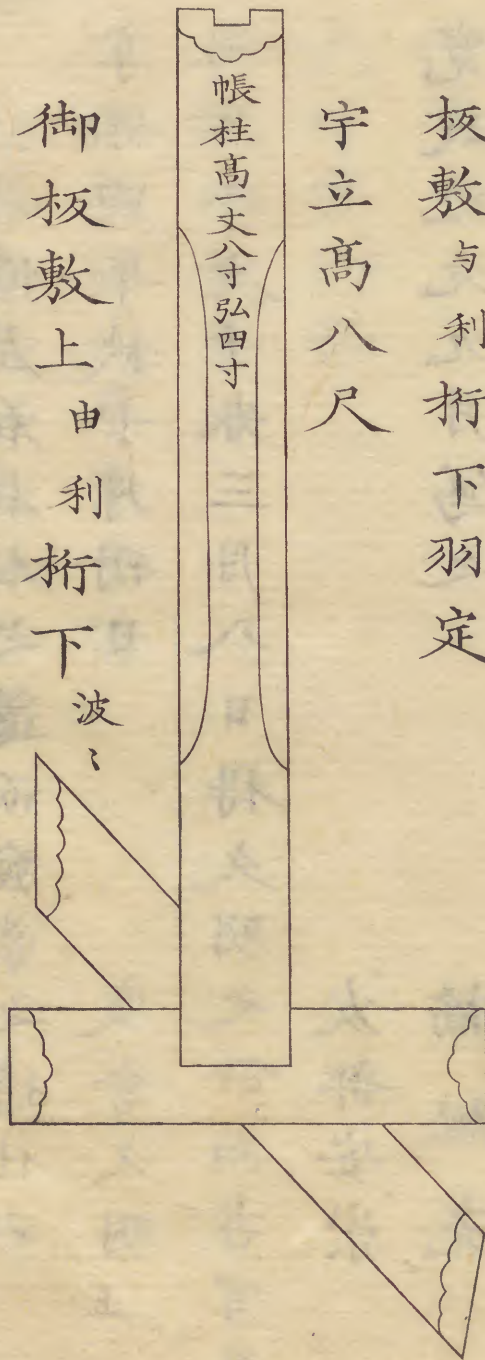 板敷与利桁下羽定
宇立高八尺
帳柱高一丈八寸弘四寸
御板敷上由利桁下波〻